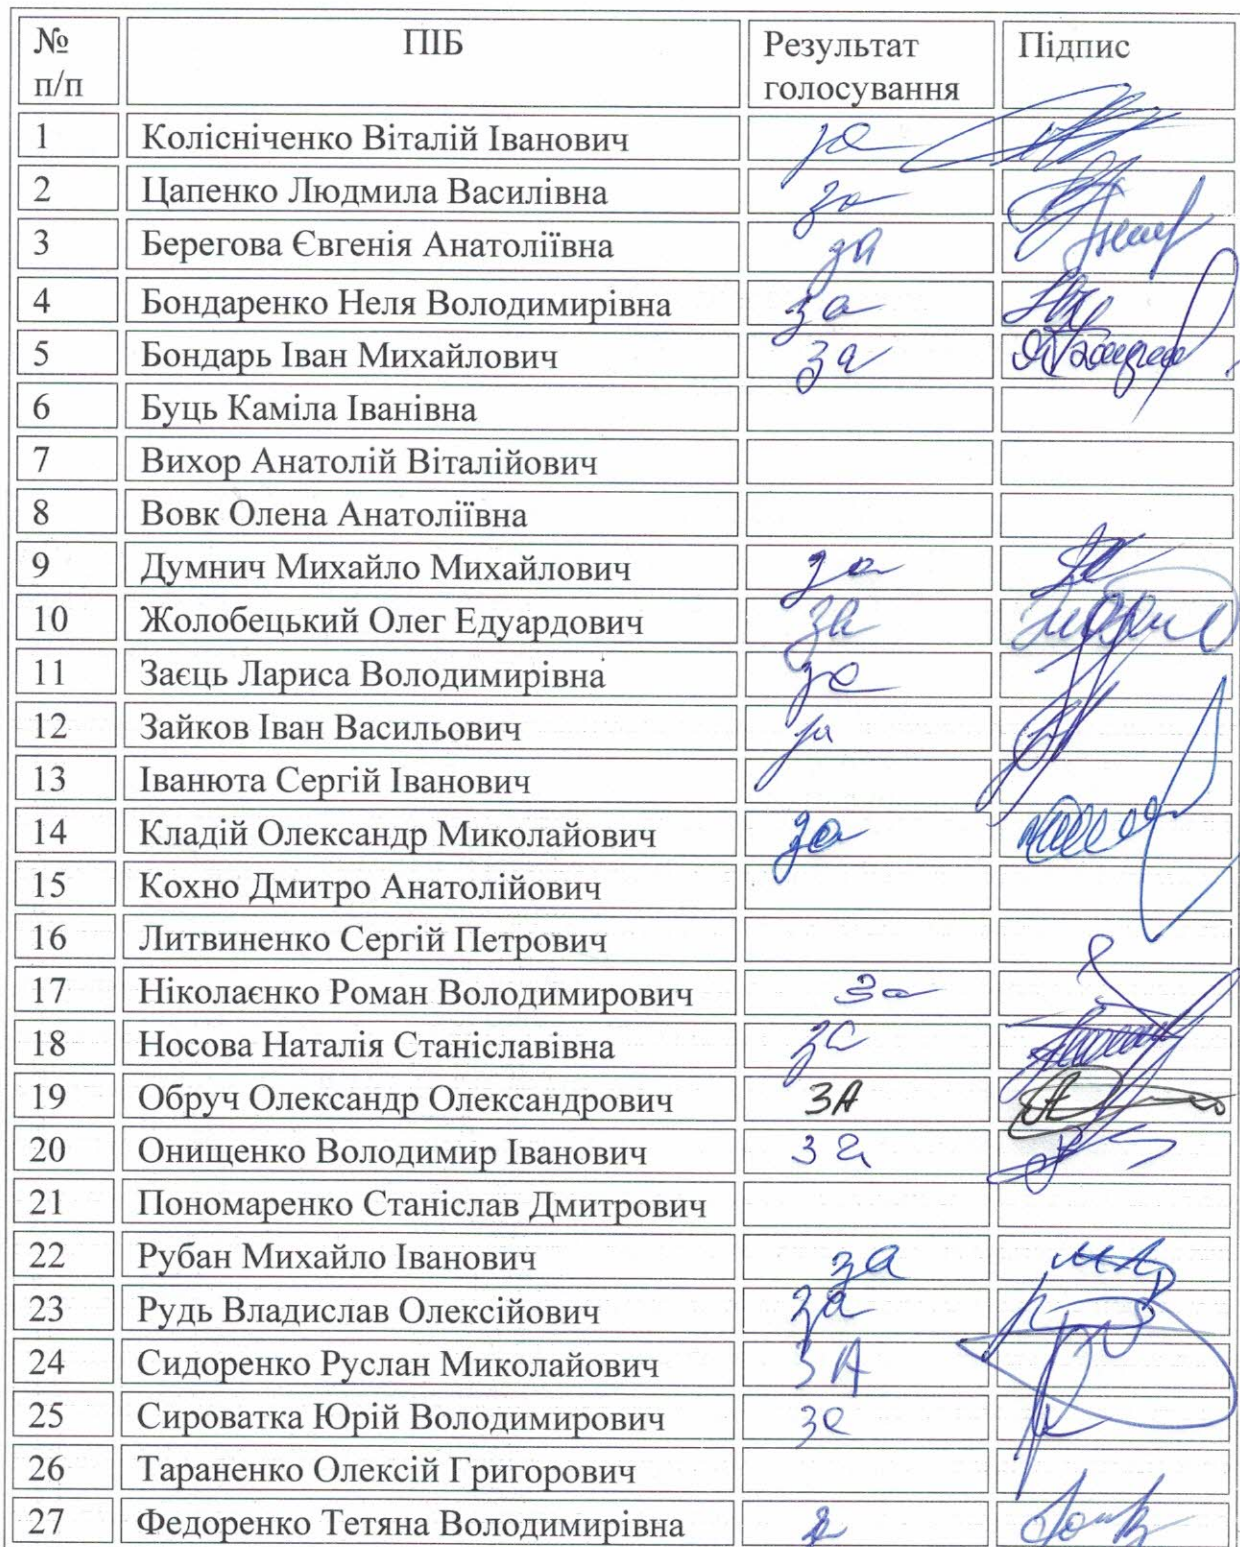 № п/п ПІБ Результат голосування Підпис
1 Колісніченко Віталій Іванович за
2 Цапенко Людмила Василівна за
3 Берегова Євгенія Анатоліївна за
4 Бондаренко Неля Володимирівна за
5 Бондарь Іван Михайлович за
6 Буць Каміла Іванівна
7 Вихор Анатолій Віталійович
8 Вовк Олена Анатоліївна
9 Думнич Михайло Михайлович за
10 Жолобецький Олег Едуардович за
11 Заєць Лариса Володимирівна за
12 Зайков Іван Васильович за
13 Іванюта Сергій Іванович
14 Кладій Олександр Миколайович за
15 Кохно Дмитро Анатолійович
16 Литвиненко Сергій Петрович
17 Ніколаєнко Роман Володимирович За
18 Носова Наталія Станіславівна за
19 Обруч Олександр Олександрович ЗА
20 Онищенко Володимир Іванович за
21 Пономаренко Станіслав Дмитрович
22 Рубан Михайло Іванович за
23 Рудь Владислав Олексійович за
24 Сидоренко Руслан Миколайович ЗА
25 Сироватка Юрій Володимирович за
26 Тараненко Олексій Григорович
27 Федоренко Тетяна Володимирівна